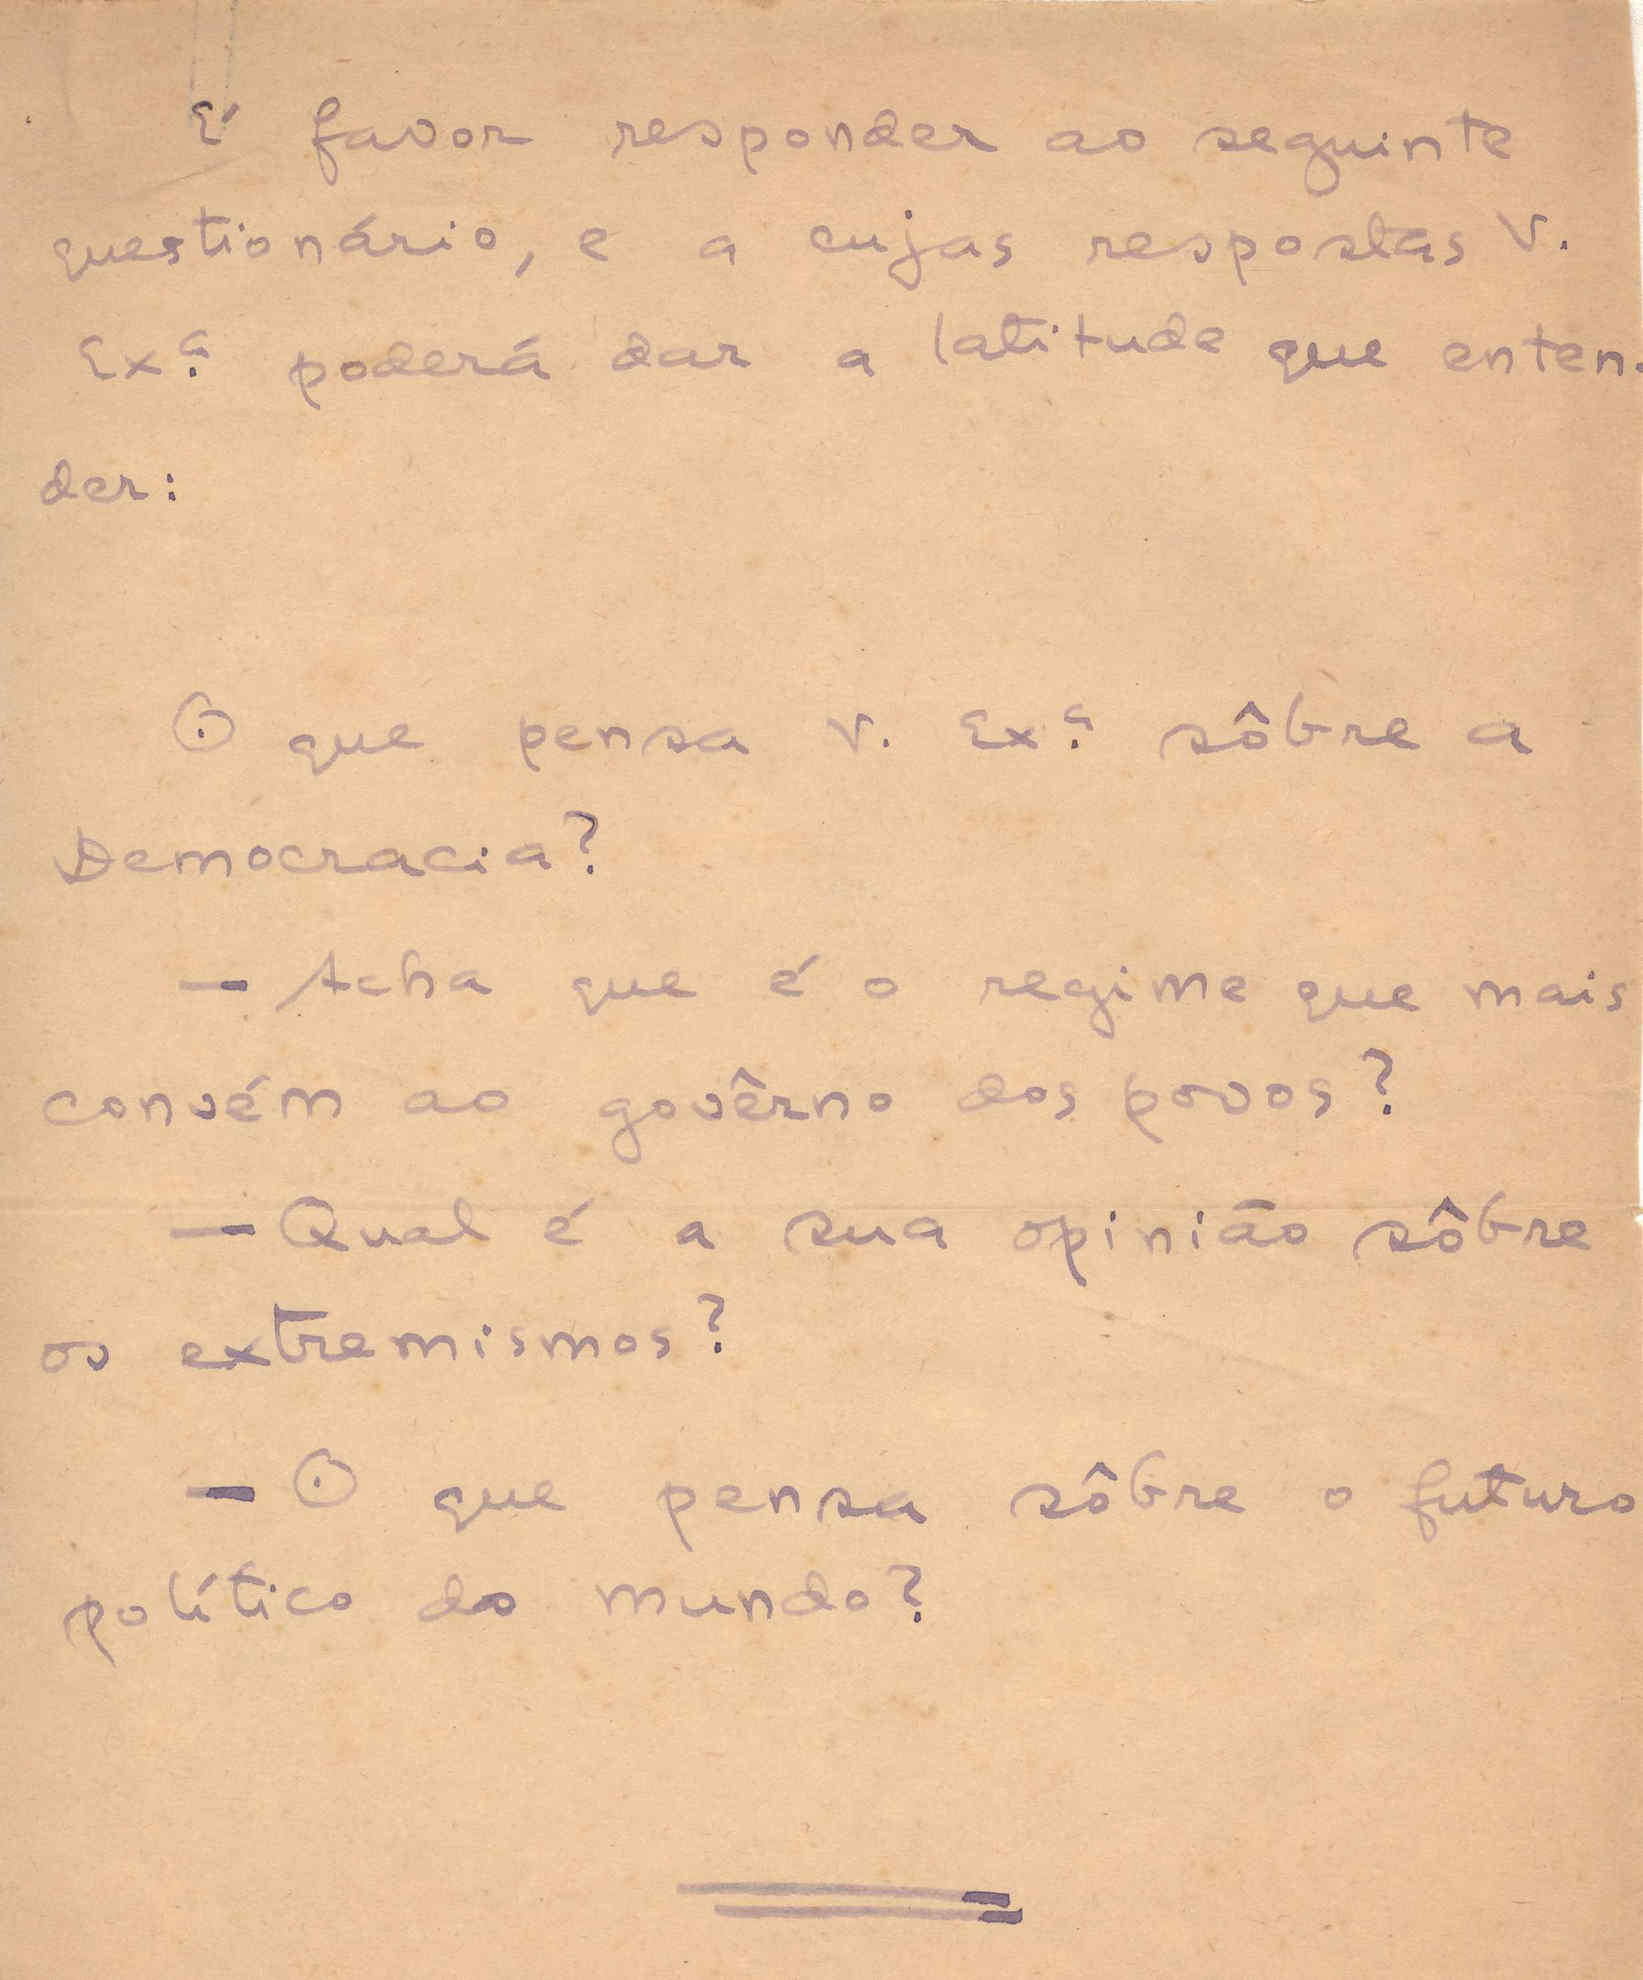 É favor responder ao seguinte
questionário, e a cujas respostas V.
Exª poderá dar a latitude que enten-
der:
O que pensa V. Exª sôbre a
Democracia?
— Acha que é o regime que mais
convém ao govêrno dos povos?
— Qual é a sua opinião sôbre
os extremismos?
— O que pensa sôbre o futuro
político do mundo?